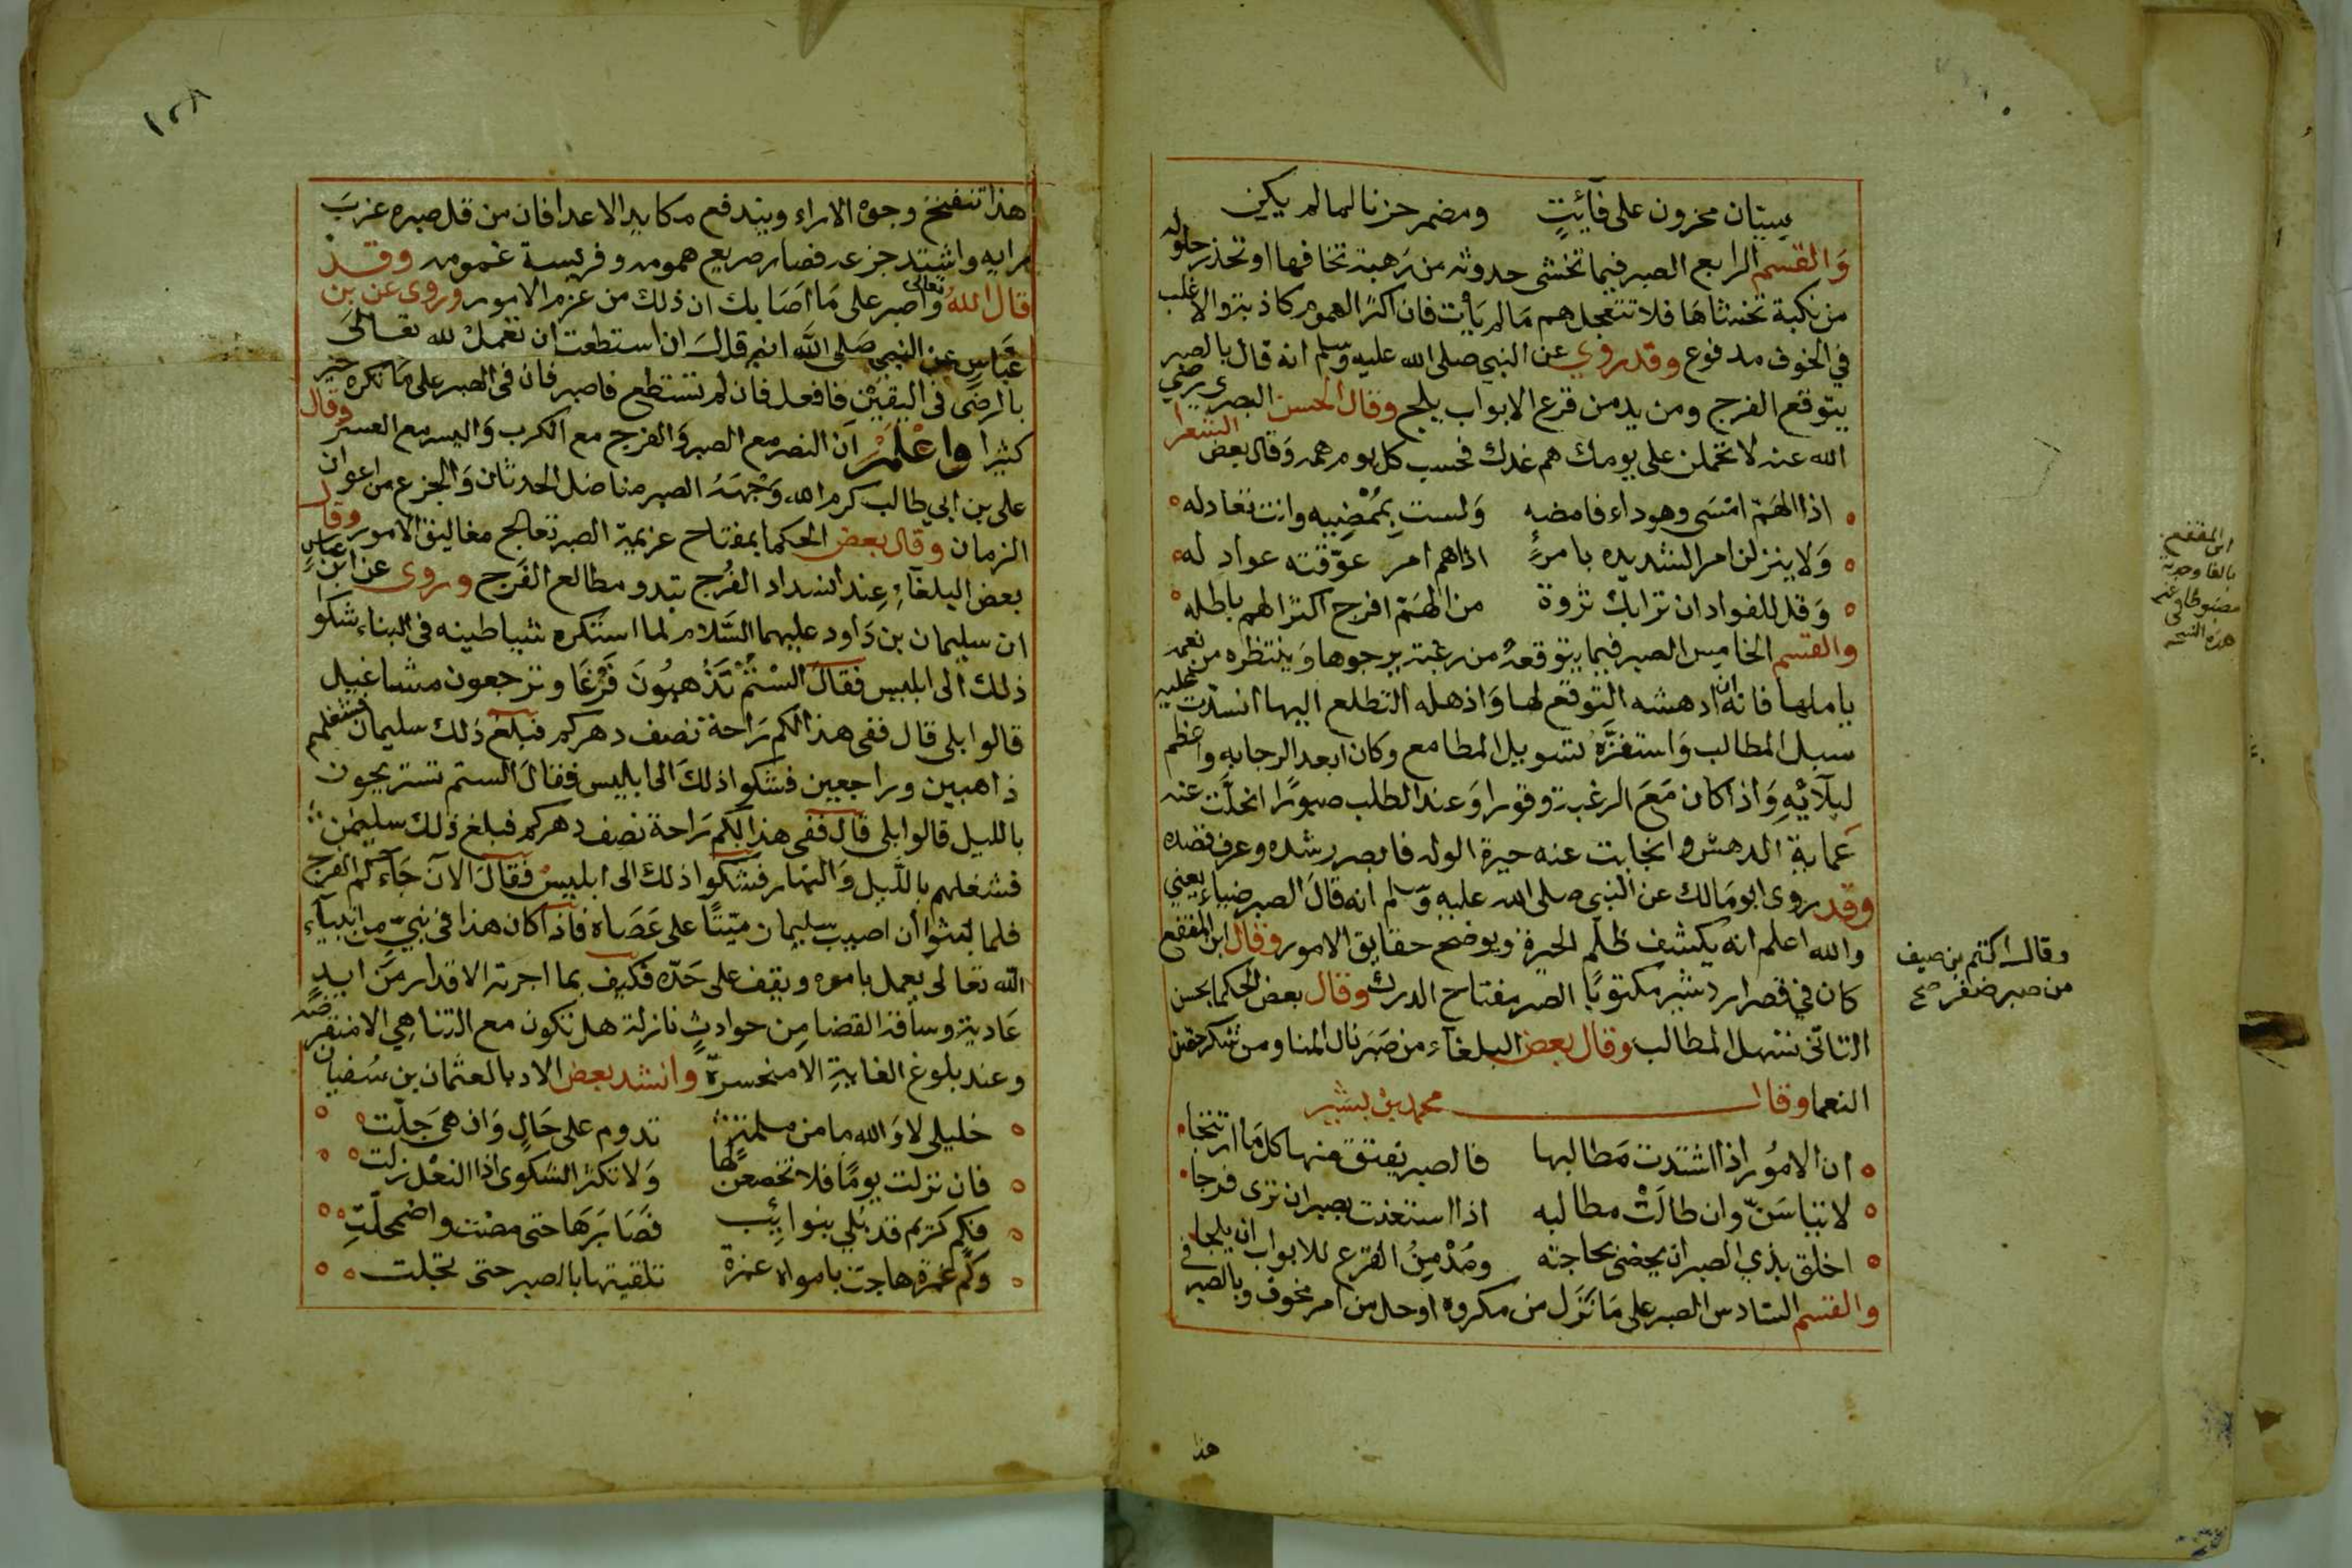 سيتان محزون على فآئيتٍ ومضمر حزنا لما لم يكن
وَالقسم الرابع الصبر فيما تخشى حدوثه من رهبة تخافها او تحذر حلوله
من نكبة تخشاهَا فلا تتعجل هم مَا لم يَأت فان اكثر الهموم كاذبة والاغلب
في الخوف مدفوع وقد روي عن النبي صلى الله عليه وسلم انه قال بالصبر
يتوقع الفرج ومن يدمن قرع الابواب يلج وقال الحسن البصري رضي
الله عنه لا تحملن على يومك هم غدك فحسب كل يوم همه وَقال بعض الشعرا
اذا الهَمّ امْسَى وهو داء فامضه وَلست بِمُمْضِيه وانت تعادله
وَلا ينزلن امر الشديده بامرءٍ اذا هم امر عوّقته عواد له
وَقل للفواد ان ترابك ثروة من الهَمّ افرج اكثر الهم باطله
والقسم الخامس الصبر فيما يتوقعهُ من رغبة يرجوها وَينتظره من نعمة
ياملها فانه ان ادهشه التوقع لها وَاذهله التطلع اليها انسدت عليه
سبل المطالب وَاستفزَّهُ تسويل المطامع وكان ابعد الرجايه واعظم
لبلآئِهِ وَاذا كان مَعَ الرغبة وقورا وَعند الطلب صبورًا انجلَّت عنه
عَمايةِ الدهش وانجابت عنه حيرة الوله فابصر رشده وعرف قصده
وقد روى ابو مَالك عن النبى صلى الله عليهِ وَسلم انه قالَ الصبر ضياء يعني
والله اعلم انهُ يكشف ظلَم الحيرة ويوضح حقايق الامور وقال ابن المقفع
كان في قصر اردشير مكتوبًا الصبر مفتاح الدرك وقال بعض الحكما بحسن
التاتّي تسهل المطالب وقال بعض البلغآء من صبر نال المنا ومن شكر حصّن
النعما وقال محمد بن بشير
ان الامُور اذا اشتدت مَطالبها فالصبر يفتق منها كل مَا ارتتجا
لا تياسَنّ وان طالَتْ مطالبه اذا استعنت بصبر ان ترى فرجا
اخلق بذي الصبر ان يحضى بحاجته ومُدْمِنُ القرع للابواب ان يلجا
والقسم السّادس الصبر على مَا نَزَل من مكروه او حل من امر مخوف وبالصبر في
هذا
وقال اكثم بن صيف
من صبر ظفر صح
ابن المقفع
بالفا وجدته
مضبوطا في غير
هذه النسخه
١٢٨
هذا تنفتح وجوه الاراء ويندفع مكايد الاعدا فان من قل صبره عزبَ
رايه واشتد جزعه فصار صريع همومه وفريسة غمومه وقد
قال اللهُ تعالى وَاصبر على مَا اصَابك ان ذلك من عزم الامور وروى عن بن
عباسٍ عن النبي صَلى الله انه قالَ ان استطعت ان تعمل لله تعالىَ
بالرضَى في اليقين فافعل فان لم تستطع فاصبر فان في الصبر على مَا تكره خير
كثيرا وَاعْلَمْ ان النصر مع الصبر وَالفرج مع الكرب وَاليسر مع العسر وقال
على بن ابي طالب كرم الله وَجهَهُ الصبر مناضل الحدثان وَالجزع من اعوان
الزمان وقال بعض الحكما بمفتاح عزيمة الصبر تعالج مغاليق الامور وقال
بعض البلغآءِ عِند انسداد الفُرج تبدو مطالع الفَرج وروى عن ابن عباسٍ
ان سليمان بن دَاود عليهما السَّلام لما استكره شياطينه في البناء شكوا
ذلك الى ابليس فقالَ الستُمْ تَذْهبُونَ فَرْغًا وترجعون مشاغيل
قالوا بلى قال ففى هذا لكم رَاحة نصف دهركم فبلغَ ذلك سليمان فشغلهم
ذاهبين وراجعين فشكوا ذلكَ الى ابليس فقالَ الستم تستريحون
بالليل قالوا بلى قال ففى هذا لكم رَاحة نصف دهركم فبلغ ذلك سليمٰن
فشغلهم بالّليل وَالنهار فشكوا ذلك الى ابليس فقالَ الآنَ جَآءكم الفرج
فلما لبثوا أن اصيب سليمان ميّتًا على عَصَاه فاذا كان هذا في نبيٍّ من انبيآءِ
الله تعالى يعمل بامره ويقف على حَدّه فكيف بما اجرته الاقدار من ايدٍ
عَاديةٍ وساقه القضا من حوادثٍ نازلة هل تكون مع التناهي الا منقرضة
وعند بلوغ الغاية الا منحسرةً وانشد بعض الادبا لعثمان بن سُفيان
خليلي لا وَالله ما من ملمة تدوم على حَالٍ وَان هى جَلّت
فان نزلت يومًا فلا تخضعن لها وَلا تكثر الشكوى اذا النعْل زلت
فكم كريم قد بُلي بنوائِب فصَابَرَهَا حتى مضت واضمحلّتِ
وكم غمْرة هاجت بامواه غمرة تلقيتها بالصبر حتى تجلت